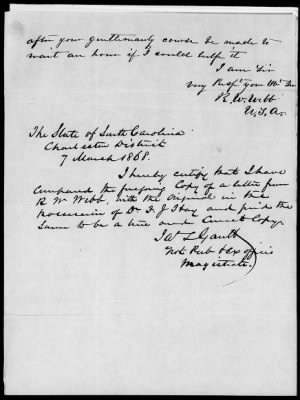 after your gentlemanly course be made to
wait an hour if I could help it
I am Sir
very Resp'y your Ob't
R. W. Webb
U.S.A.
The State of South Carolina
Charleston District
7 March 1868.
I hereby certify that I have
Compared the foregoing Copy of a letter from
R W Webb, with the Original in the
possession of Dr. T. J. Hay and find the
Same to be a true and Correct Copy.
Jas L Gantt
Not Pub & ex officio
Magistrate